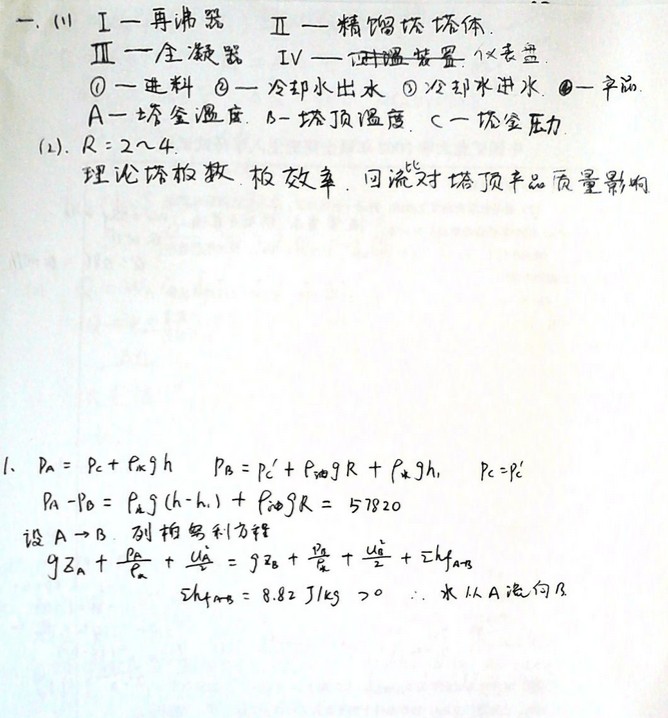 一. (1) I — 再沸器 II — 精馏塔塔体.
III — 全凝器 IV — 仪表盘.
① — 进料 ② — 冷却水出水 ③ 冷却水进水. ④ — 产品.
A — 塔釜温度. B - 塔顶温度. C — 塔釜压力.
(2). R = 2~4.
理论塔板数. 板效率. 回流比对塔顶产品质量影响
1. PA = PC + ρ水gh PB = PC' + ρ油gR + ρ水gh1 PC = PC'
PA - PB = ρ水g(h-h1) + ρ油gR = 57820
设 A → B. 列柏努利方程
gZA + PA/ρ水 + uA²/2 = gZB + PB/ρ水 + uB²/2 + Σhf A-B
Σhf A-B = 8.82 J/kg >0 ∴ 水从A流向B.